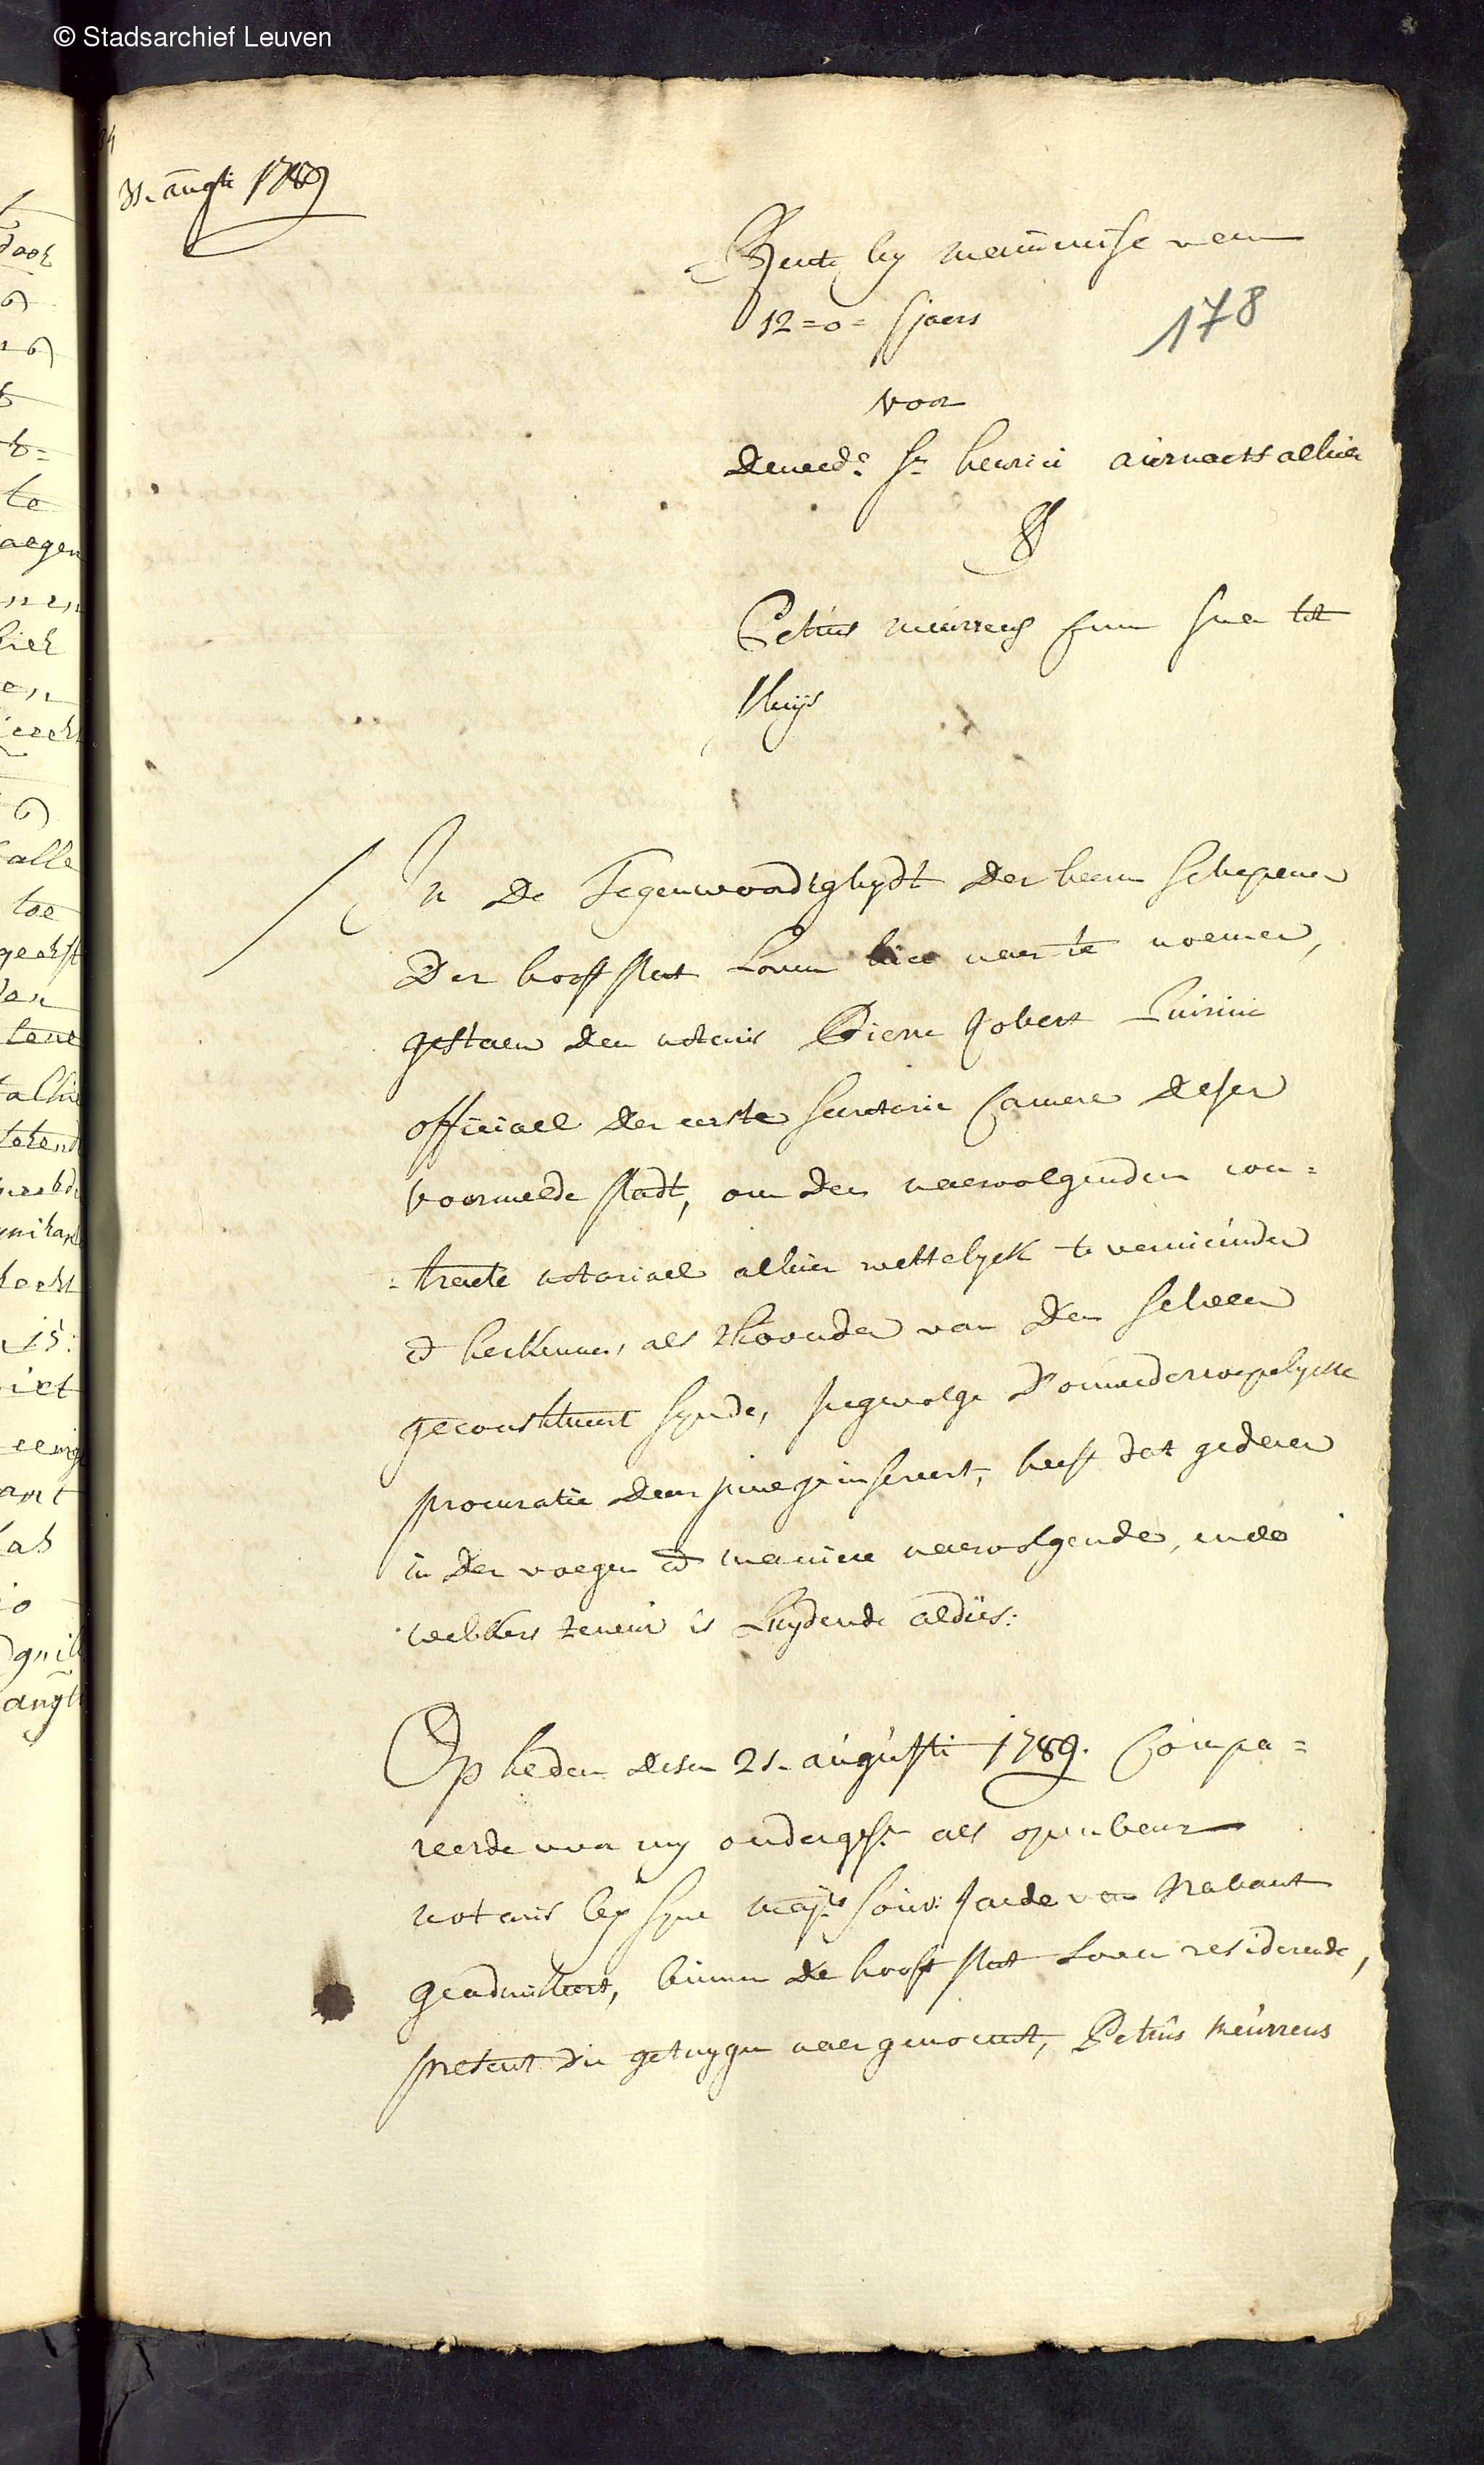 © Stadsarchief Leuven
31. aūgti 1789
Rente by maniere van
12=0= sjaers
178
voor
de weede Sr henrici aiernaerts alhier
&
Petrus meurrens cum sua tot
In De Tegenwoordighydt der heeren schepenen
Der hooft stat Loven hier naer te noemen,
gestaen den notaris Pierre Robert
officiael der eerste secretarie Camere deser
voormelde stadt, om den naervolgenden con=
=tracte notariael alhier wettelyck te vernieuwden
et herkennen, als thoonder van den selven
geconstitueert synde, ingevolge d'onwederroepelycke
procuratie daer inne geinsereert, heeft dat gedaen
in der voegen et maniere naervolgende, ende
welckers teneur is Luydende aldus:
Op heden desen 21. augusti 1789. Compa=
reerde voor my ondergesn als openbaer
notaris by syne majts souv: raede van Brabant
geadmitteert, binnen de hooft stat Loven residerende,
present die getuygen naergenoemt, Petrus meurrens